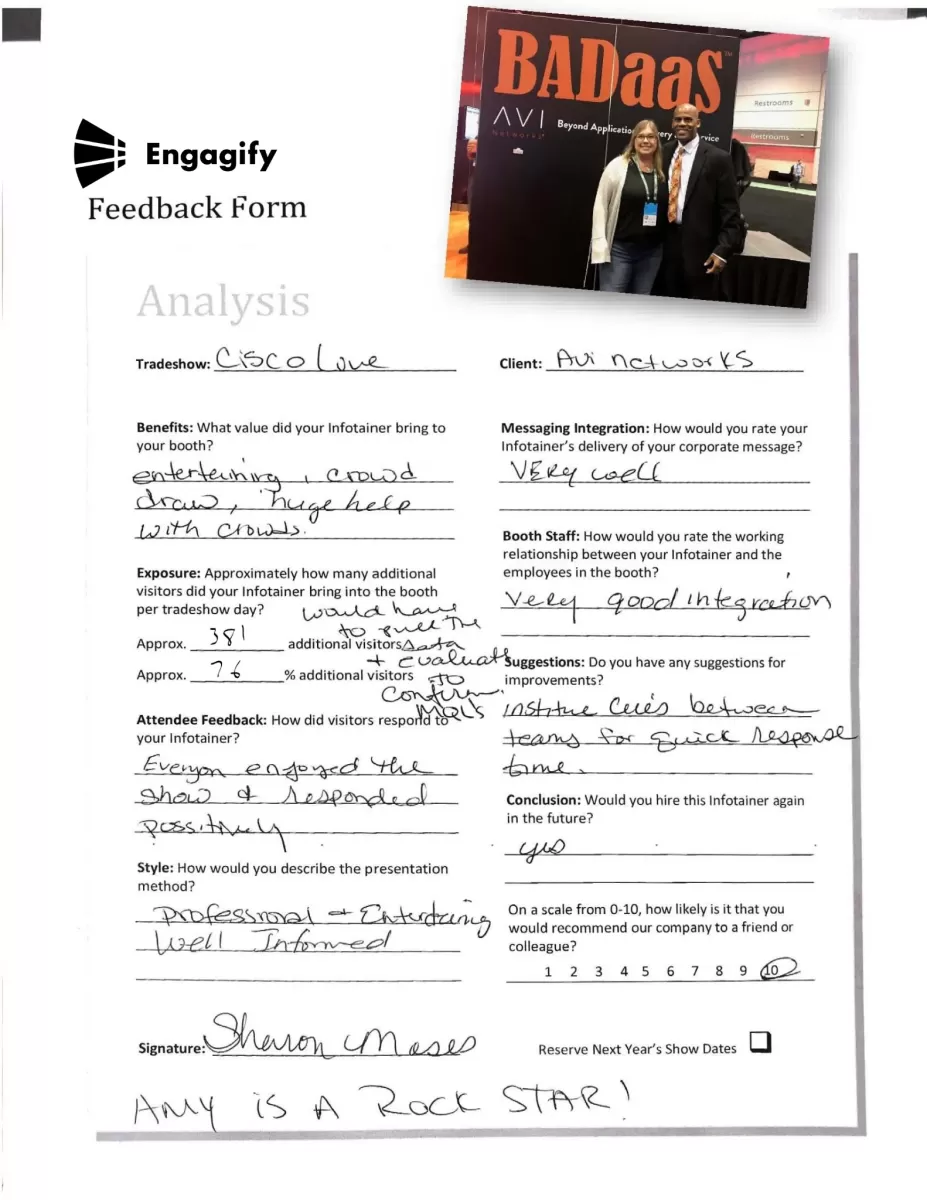 BADaaS™
AVI
networks
Beyond Application Delivery
Service
Restrooms
Restrooms
Engagify
Feedback Form
Analysis
Tradeshow: Cisco Live
Client: Avi networks
Benefits: What value did your Infotainer bring to
your booth?
entertaining, crowd
draw, huge help
with crowds.
Exposure: Approximately how many additional
visitors did your Infotainer bring into the booth
per tradeshow day?
Approx. 381 additional visitors
Approx. 76 % additional visitors
would have
to pull the
data
+ evaluate
to
confirm
MQL's
Attendee Feedback: How did visitors respond to
your Infotainer?
Everyon enjoyed the
show & responded
possitively
Style: How would you describe the presentation
method?
Professional + Entertaining
Well Informed
Messaging Integration: How would you rate your
Infotainer's delivery of your corporate message?
VERY well
Booth Staff: How would you rate the working
relationship between your Infotainer and the
employees in the booth?
Very good integration
Suggestions: Do you have any suggestions for
improvements?
between
teams for quick response
time.
Conclusion: Would you hire this Infotainer again
in the future?
yes
On a scale from 0-10, how likely is it that you
would recommend our company to a friend or
colleague?
1 2 3 4 5 6 7 8 9 10
Signature: Sharon Moses
Reserve Next Year's Show Dates
AMY IS A ROCK STAR!